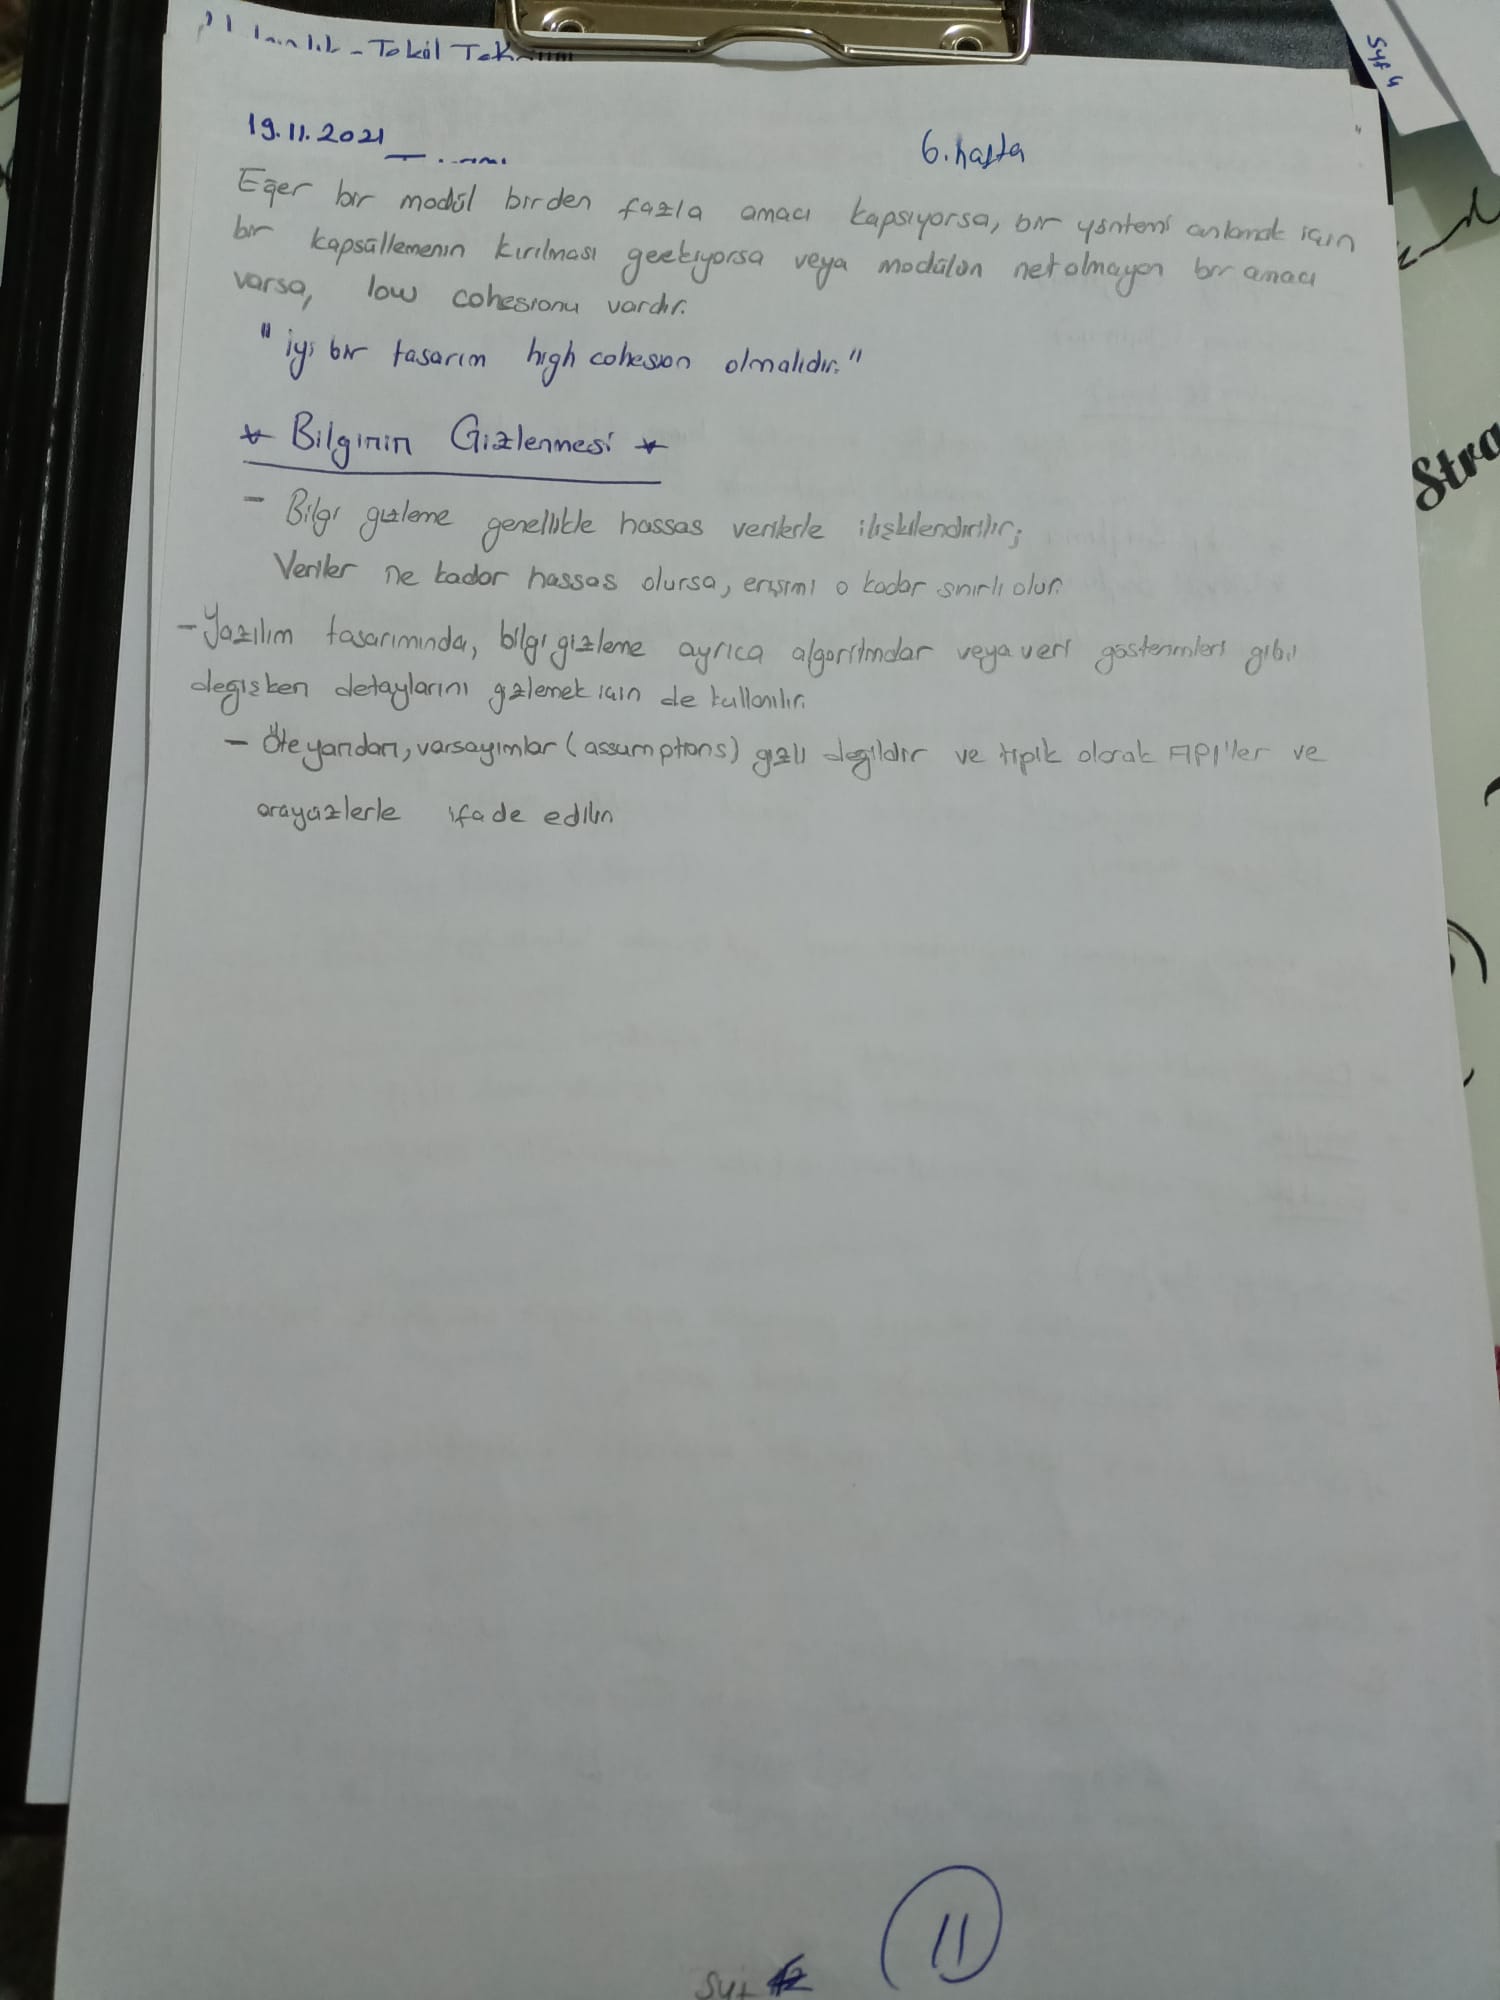 - Tekil
syf 4
19.11.2021
6. hafta
Eğer bir modül birden fazla amacı kapsıyorsa, bir yöntemi anlamak için
bir kapsüllemenin kırılması geekiyorsa veya modülün net olmayan bir amacı
varsa, low cohesionu vardır.
"iyi bir tasarım high cohesion olmalıdır."
* Bilginin Gizlenmesi *
- Bilgi gizleme genellikle hassas verilerle ilişkilendirilir;
Veriler ne kadar hassas olursa, erişimi o kadar sınırlı olur.
- Yazılım tasarımında, bilgi gizleme ayrıca algoritmalar veya veri gösterimleri gibi
değişken detaylarını gizlemek için de kullanılır.
- Öte yandan, varsayımlar (assumptions) gizli değildir ve tipik olarak API'ler ve
arayüzlerle ifade edilir.
Stra
11
syf